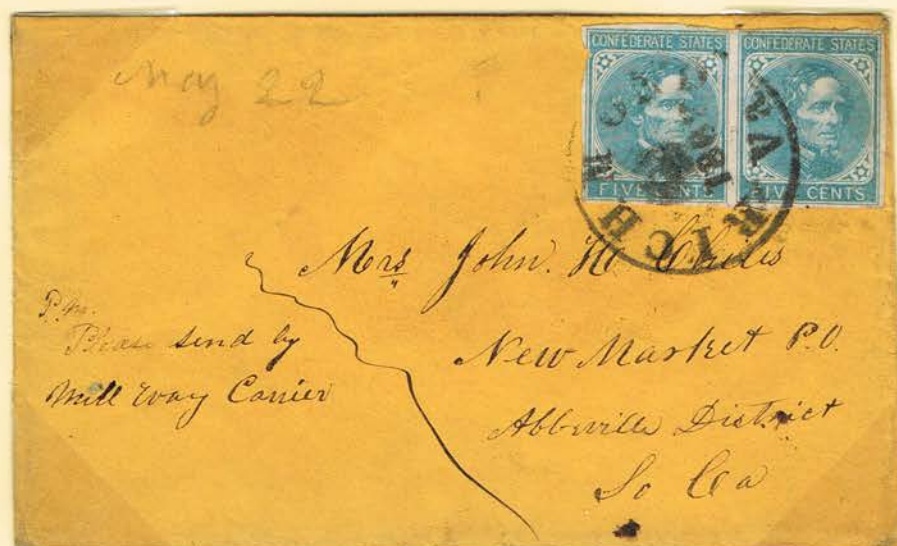 May 22
CONFEDERATE STATES CONFEDERATE STATES
FIVE CENTS FIVE CENTS
RICHM VA.
Mrs John. H Chiles
New Market P.O.
Abbeville District
So Ca
P.M.
Please send by
Mill Way Carrier